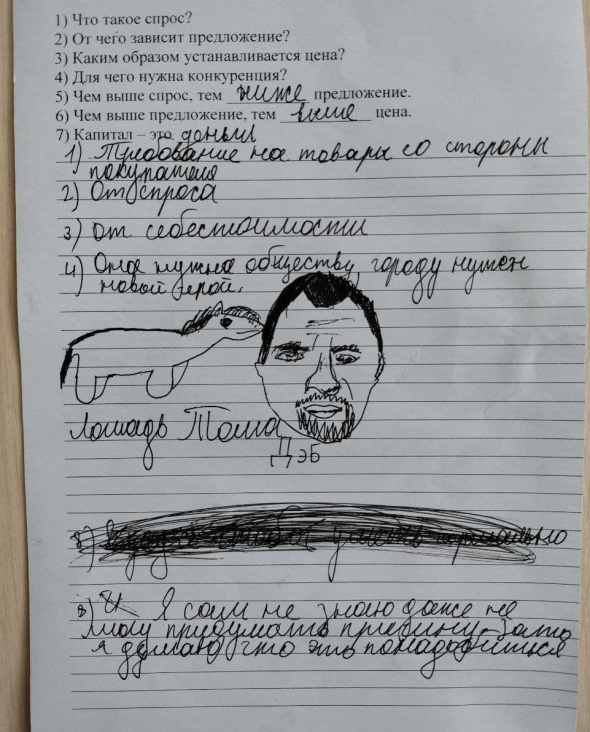 1) Что такое спрос?
2) От чего зависит предложение?
3) Каким образом устанавливается цена?
4) Для чего нужна конкуренция?
5) Чем выше спрос, тем ниже предложение.
6) Чем выше предложение, тем выше цена.
7) Капитал – это деньги
1) Требование на товары со стороны
покупателя
2) От спроса
3) от себестоимости
4) Она нужна обществу, городу нужен
новый герой.
Лошадь Тоша
Дэб
8) чтобы уметь нормально
8) Я сам не знаю даже не
могу придумать причину. Зато
я думаю что это понадобиться